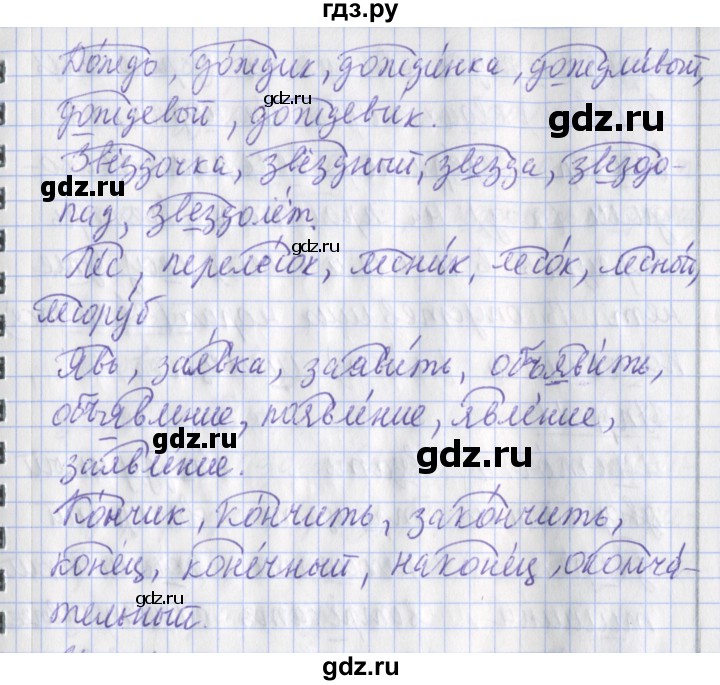 гдз.ру
До́ждь, до́ждик, дожди́нка, дождли́вый,
дождевый, дождеви́к.
Звёздочка, звёздный, звезда, звездо-
пад, звездолёт.
Ле́с, переле́со́к, лесни́к, лесо́к, лесно́й,
лесору́б
Явь, зая́вка, заяви́ть, объяви́ть,
объявление, появле́ние, явле́ние,
заявле́ние.
Ко́нчик, ко́нчить, зако́нчить,
коне́ц, коне́чный, наконе́ц, оконча́-
тельный.
gdz.ru
gdz.ru
gdz.ru
gdz.ru
gdz.ru
gdz.ru
gdz.ru
gdz.ru
gdz.ru
gdz.ru